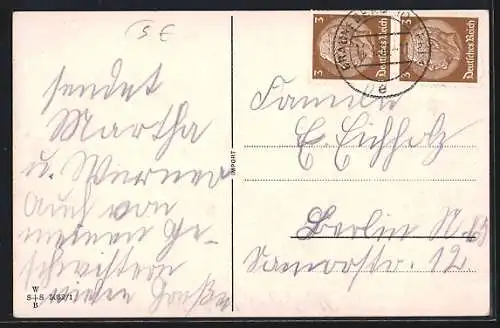 5 €
sendet
Martha
u. Werner
Auch von
meinen Ge-
schwistern
viele Grüße
W
S+S 5082/1
B
IMPORT
3 Deutsches Reich
3 Deutsches Reich
e
Familie
E. Eichholz
Berlin N.
12